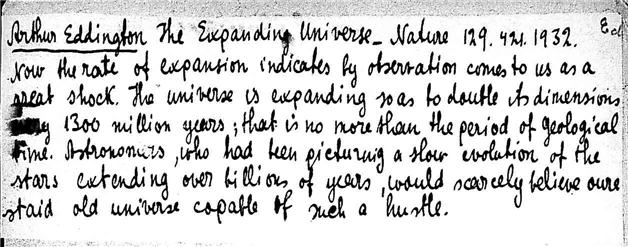 Arthur Eddington The Expanding Universe_ Nature 129. 421. 1932. Ed
Now the rate of expansion indicates by observation comes to us as a
great shock. The universe is expanding so as to double its dimensions
1300 million years; that is no more than the period of geological
time. Astronomers, who had been picturing a slow evolution of the
stars extending over billions of years, would scarcely believe oure
staid old universe capable of such a hustle.